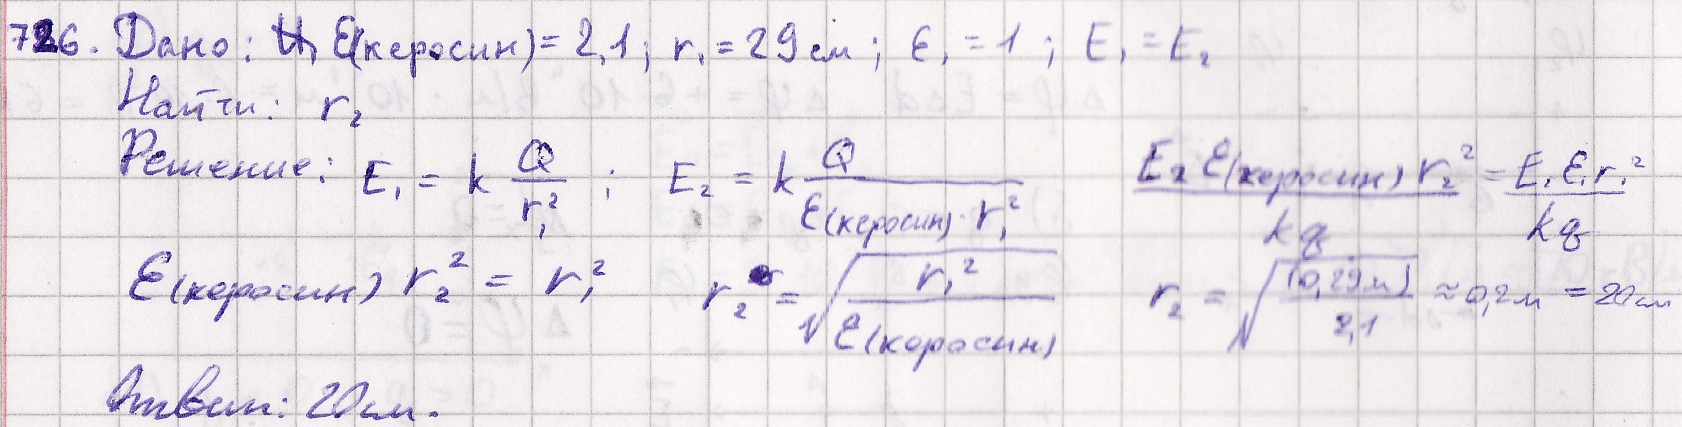 726. Дано: ε(керосин) = 2,1; r₁ = 29 см; ε₁ = 1; E₁ = E₂
Найти: r₂
Решение: E₁ = k Q/r₁²; E₂ = k Q/(ε(керосин)·r₁²) E₂ ε(керосин) r₂²/kq = E₁ ε₁ r₁²/kq
ε(керосин) r₂² = r₁² r₂ = √(r₁²/ε(керосин)) r₂ = √((0,29м)/2,1) ≈ 0,2м = 20см
Ответ: 20см.